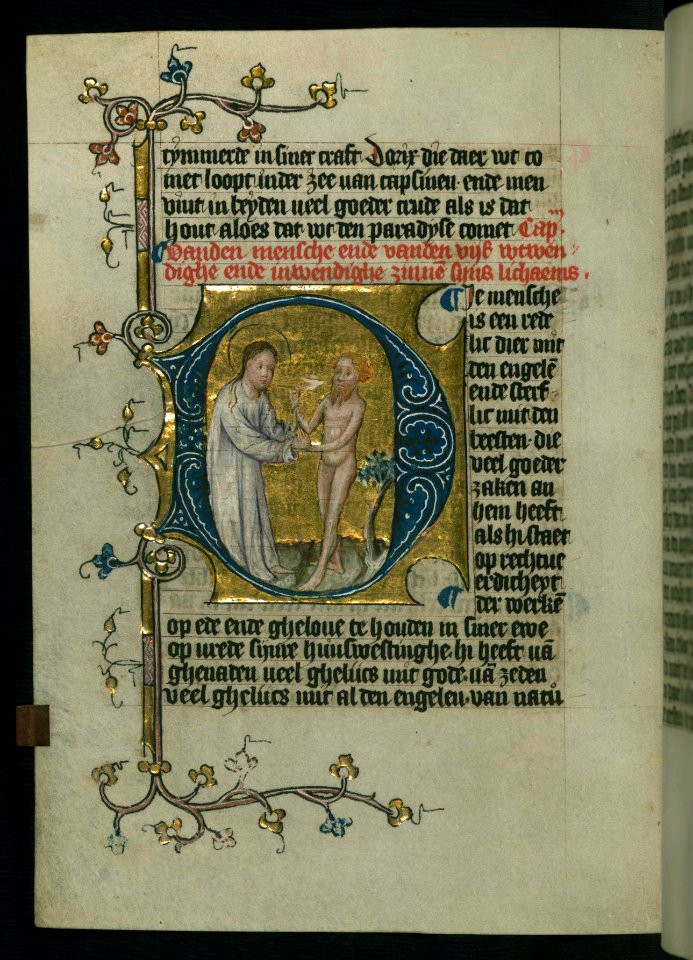 tymmerde in siner craft Dorix die daer wt co
met loopt inder zee van capsinen· ende men
vint in beyden veel goeder crude als is dat
hout aloes dat wt den paradyse comet Cap·m
Vanden mensche ende vanden vijf wtwen
dighe ende inwendighe zinnē sijns lichaems·
Je mensche
is een rede
lic dier mit
den engelē
ende sterf
lic mit den
beesten· die
veel goeder
zaken an
hem heeft
als hi staet
op rechtue
erdicheyt
der werkē
op ede ende gheloue te houden in siner ewe
op vrede sinne huuswestinghe· hi heeft vā
ghenaden veel ghelijcs mit gode· vā zeden
veel ghelijcs mit al den engelen· van natu